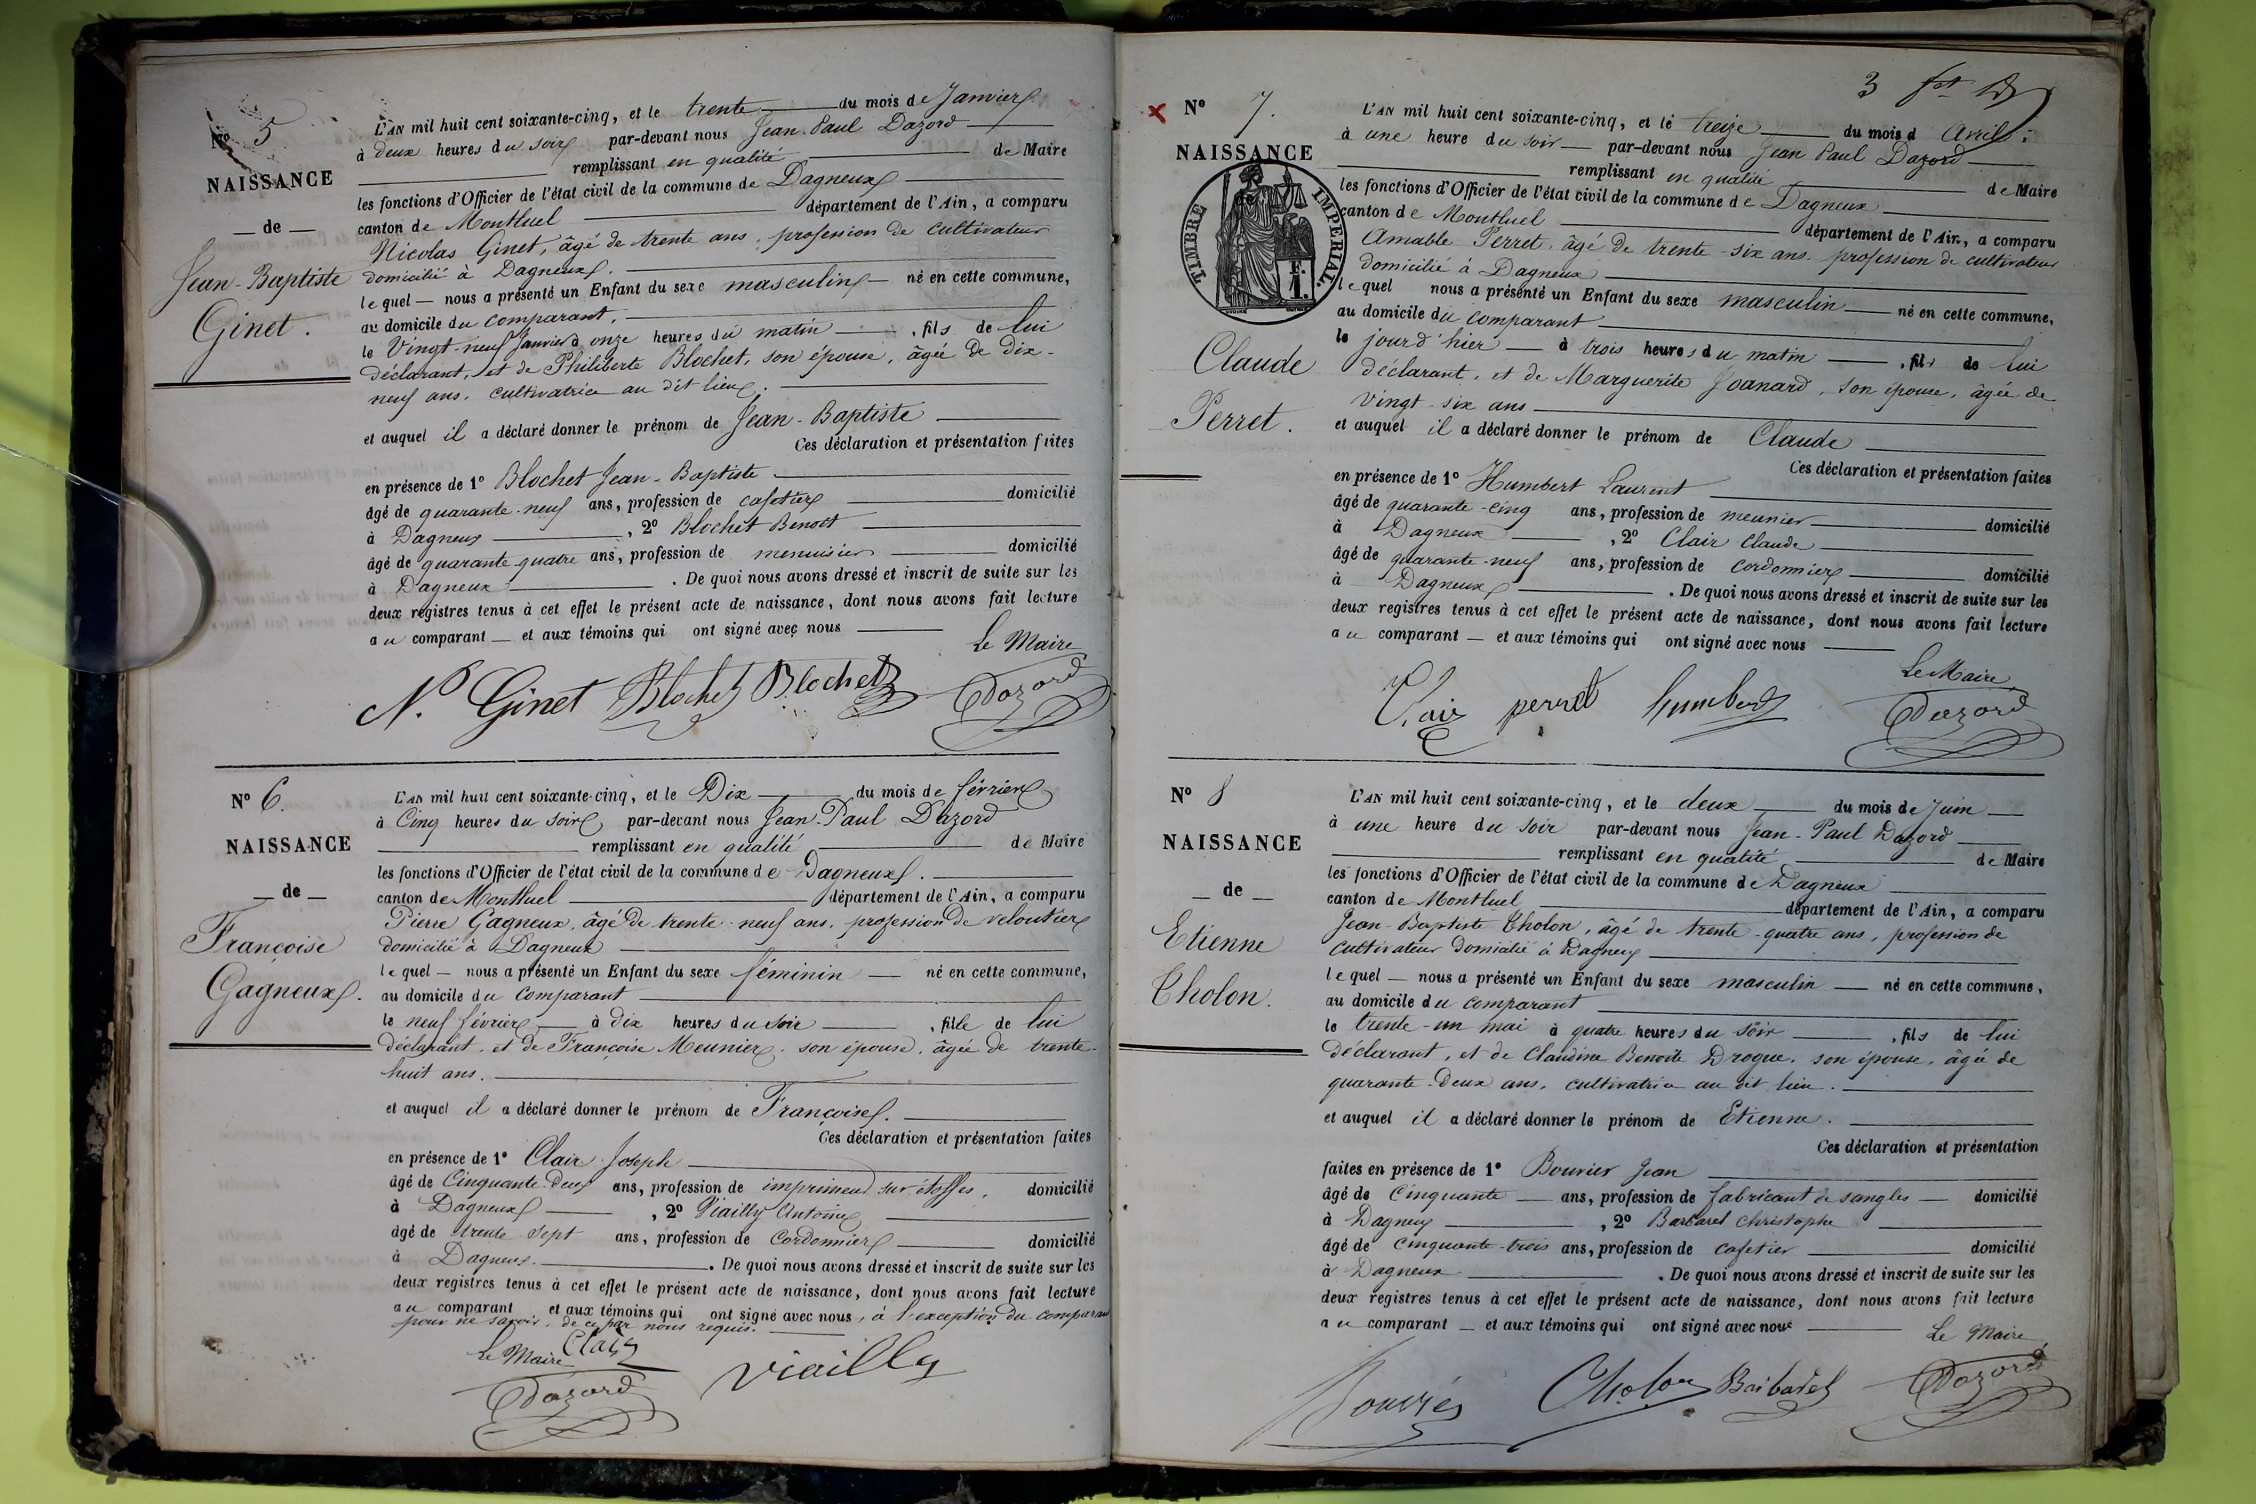 N° 5
NAISSANCE
— de —
Jean-Baptiste
Ginet.
L'AN mil huit cent soixante-cinq, et le trente du mois de Janvier
à deux heures du soir par-devant nous Jean-Paul Dazord
remplissant en qualité de Maire
les fonctions d'Officier de l'état civil de la commune de Dagneux
canton de Montluel département de l'Ain, a comparu
Nicolas Ginet, âgé de trente ans, profession de cultivateur
domicilié à Dagneux.
lequel — nous a présenté un Enfant du sexe masculin — né en cette commune,
au domicile du comparant,
le Vingt-neuf Janvier à onze heures du matin, fils de lui
déclarant, et de Philiberte Blochet, son épouse, âgée de dix-
neuf ans, cultivatrice au dit lieu.
et auquel il a déclaré donner le prénom de Jean-Baptiste
Ces déclaration et présentation faites
en présence de 1° Blochet Jean-Baptiste
âgé de quarante-neuf ans, profession de cafetier domicilié
à Dagneux, 2° Blochet Benoit
âgé de quarante-quatre ans, profession de menuisier domicilié
à Dagneux. De quoi nous avons dressé et inscrit de suite sur les
deux registres tenus à cet effet le présent acte de naissance, dont nous avons fait lecture
au comparant — et aux témoins qui ont signé avec nous
Le Maire
N. Ginet Blochet Blochet Dazord
N° 6.
NAISSANCE
— de —
Françoise
Gagneux.
L'AN mil huit cent soixante-cinq, et le Dix du mois de février
à Cinq heures du soir par-devant nous Jean-Paul Dazord
remplissant en qualité de Maire
les fonctions d'Officier de l'état civil de la commune de Dagneux.
canton de Montluel département de l'Ain, a comparu
Pierre Gagneux, âgé de trente-neuf ans, profession de veloutier
domicilié à Dagneux
lequel — nous a présenté un Enfant du sexe féminin — né en cette commune,
au domicile du comparant
le neuf février à dix heures du soir, fille de lui
déclarant, et de Françoise Meunier, son épouse, âgée de trente-
huit ans.
et auquel il a déclaré donner le prénom de Françoise.
Ces déclaration et présentation faites
en présence de 1° Clair Joseph
âgé de Cinquante deux ans, profession de imprimeur sur étoffes, domicilié
à Dagneux, 2° Viailly Antoine
âgé de trente sept ans, profession de Cordonnier domicilié
à Dagneux. De quoi nous avons dressé et inscrit de suite sur les
deux registres tenus à cet effet le présent acte de naissance, dont nous avons fait lecture
au comparant et aux témoins qui ont signé avec nous, à l'exception du comparant
pour ne savoir, de ce par nous requis.
Clair
Le Maire
Dazord Viailly
3
N° 7.
NAISSANCE
TIMBRE IMPÉRIAL
F.
1.
Claude
Perret.
L'AN mil huit cent soixante-cinq, et le treize du mois d Avril
à une heure du soir par-devant nous Jean Paul Dazord
remplissant en qualité de Maire
les fonctions d'Officier de l'état civil de la commune de Dagneux
canton de Montluel département de l'Ain, a comparu
Amable Perret, âgé de trente-six ans, profession de cultivateur
domicilié à Dagneux
lequel nous a présenté un Enfant du sexe masculin — né en cette commune,
au domicile du comparant
le jour d'hier — à trois heures du matin, fils de lui
déclarant, et de Marguerite Joanard, son épouse, âgée de
vingt-six ans
et auquel il a déclaré donner le prénom de Claude
Ces déclaration et présentation faites
en présence de 1° Humbert Laurent
âgé de quarante-cinq ans, profession de meunier domicilié
à Dagneux, 2° Clair Claude
âgé de quarante-neuf ans, profession de cordonnier domicilié
à Dagneux. De quoi nous avons dressé et inscrit de suite sur les
deux registres tenus à cet effet le présent acte de naissance, dont nous avons fait lecture
au comparant — et aux témoins qui ont signé avec nous
Le Maire
Clair perret humbert Dazord
N° 8
NAISSANCE
— de —
Etienne
Cholon.
L'AN mil huit cent soixante-cinq, et le deux du mois de Juin
à une heure du soir par-devant nous Jean-Paul Dazord
remplissant en qualité de Maire
les fonctions d'Officier de l'état civil de la commune de Dagneux
canton de Montluel département de l'Ain, a comparu
Jean-Baptiste Cholon, âgé de trente-quatre ans, profession de
cultivateur domicilié à Dagneux
lequel — nous a présenté un Enfant du sexe masculin — né en cette commune,
au domicile du comparant
le trente-un mai à quatre heures du soir, fils de lui
déclarant, et de Claudine Benoite Drogue, son épouse, âgée de
quarante-deux ans, cultivatrice au dit lieu.
et auquel il a déclaré donner le prénom de Etienne.
Ces déclaration et présentation
faites en présence de 1° Bouvier Jean
âgé de Cinquante ans, profession de fabricant de sangles domicilié
à Dagneux, 2° Barbaret Christophe
âgé de cinquante-trois ans, profession de cafetier domicilié
à Dagneux. De quoi nous avons dressé et inscrit de suite sur les
deux registres tenus à cet effet le présent acte de naissance, dont nous avons fait lecture
au comparant — et aux témoins qui ont signé avec nous
Le Maire
Bouvier Cholon Barbaret Dazord